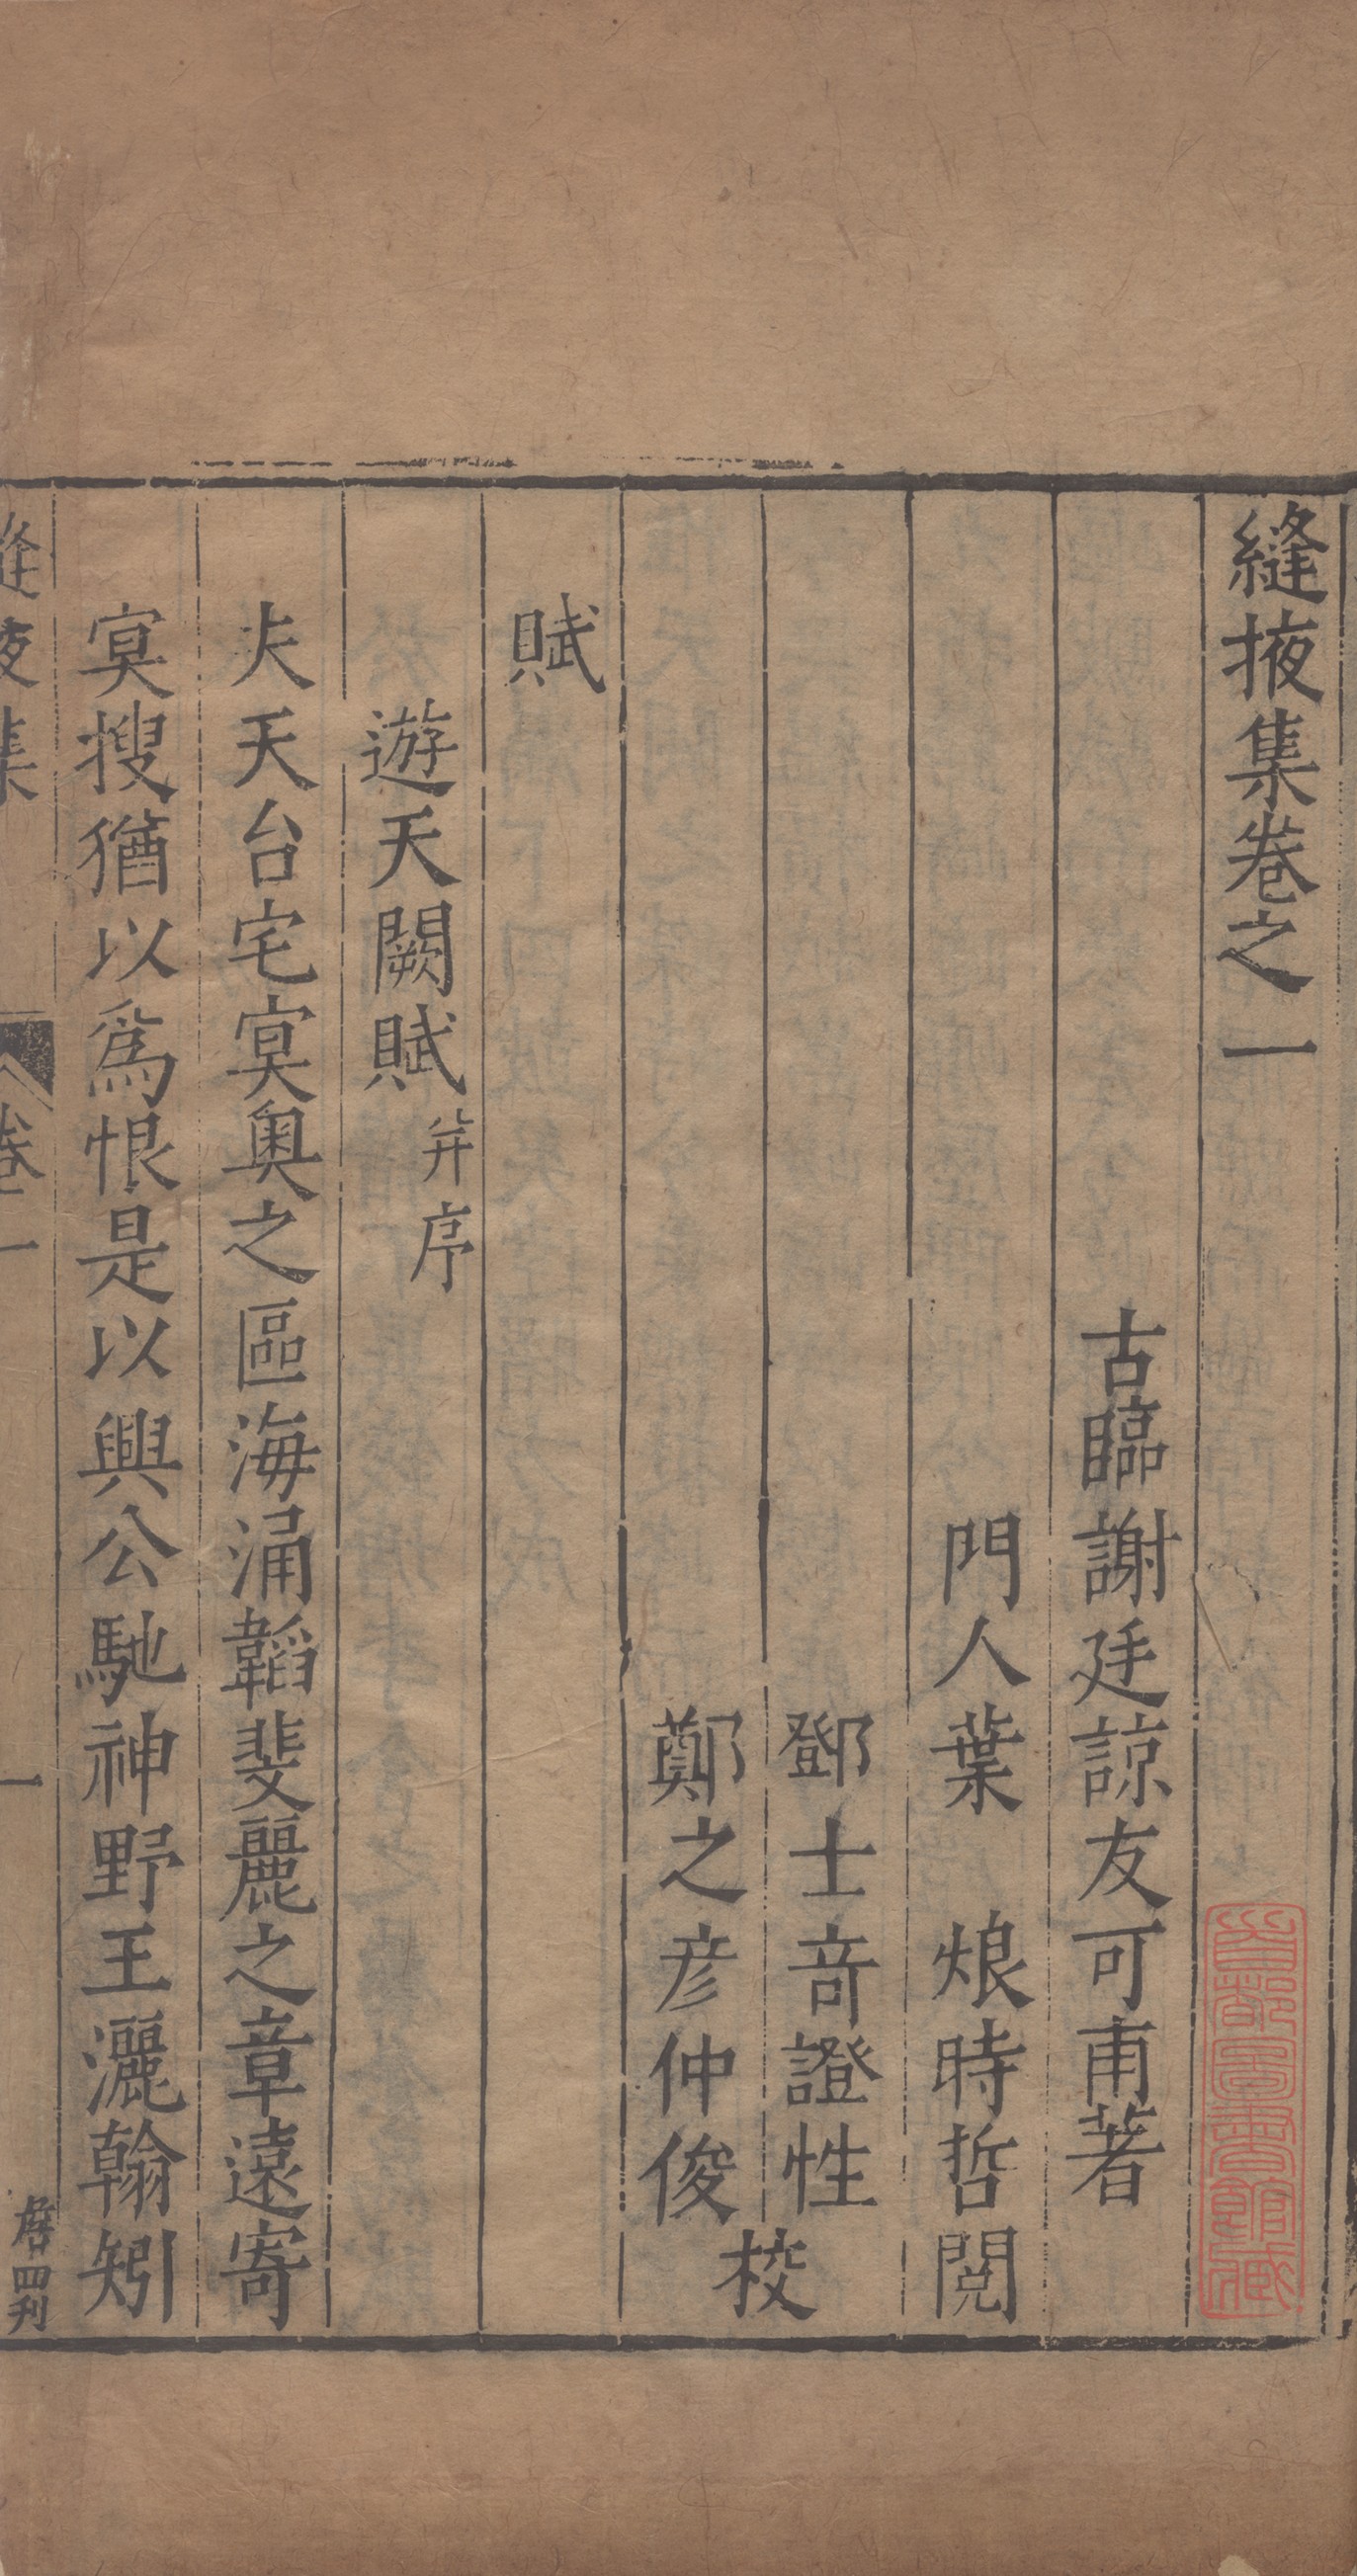 縫掖集卷之一
古臨謝廷諒友可甫著
門人葉烺時哲閱
鄧士竒證性
鄭之彦仲俊
校
賦
遊天闕賦并序
夫天台宅㝠奥之區海涌韜斐麗之章遠寄
㝠搜猶以爲恨是以興公馳神野王灑翰矧
縫掖集
卷一
一
四刊
首都圖書館藏